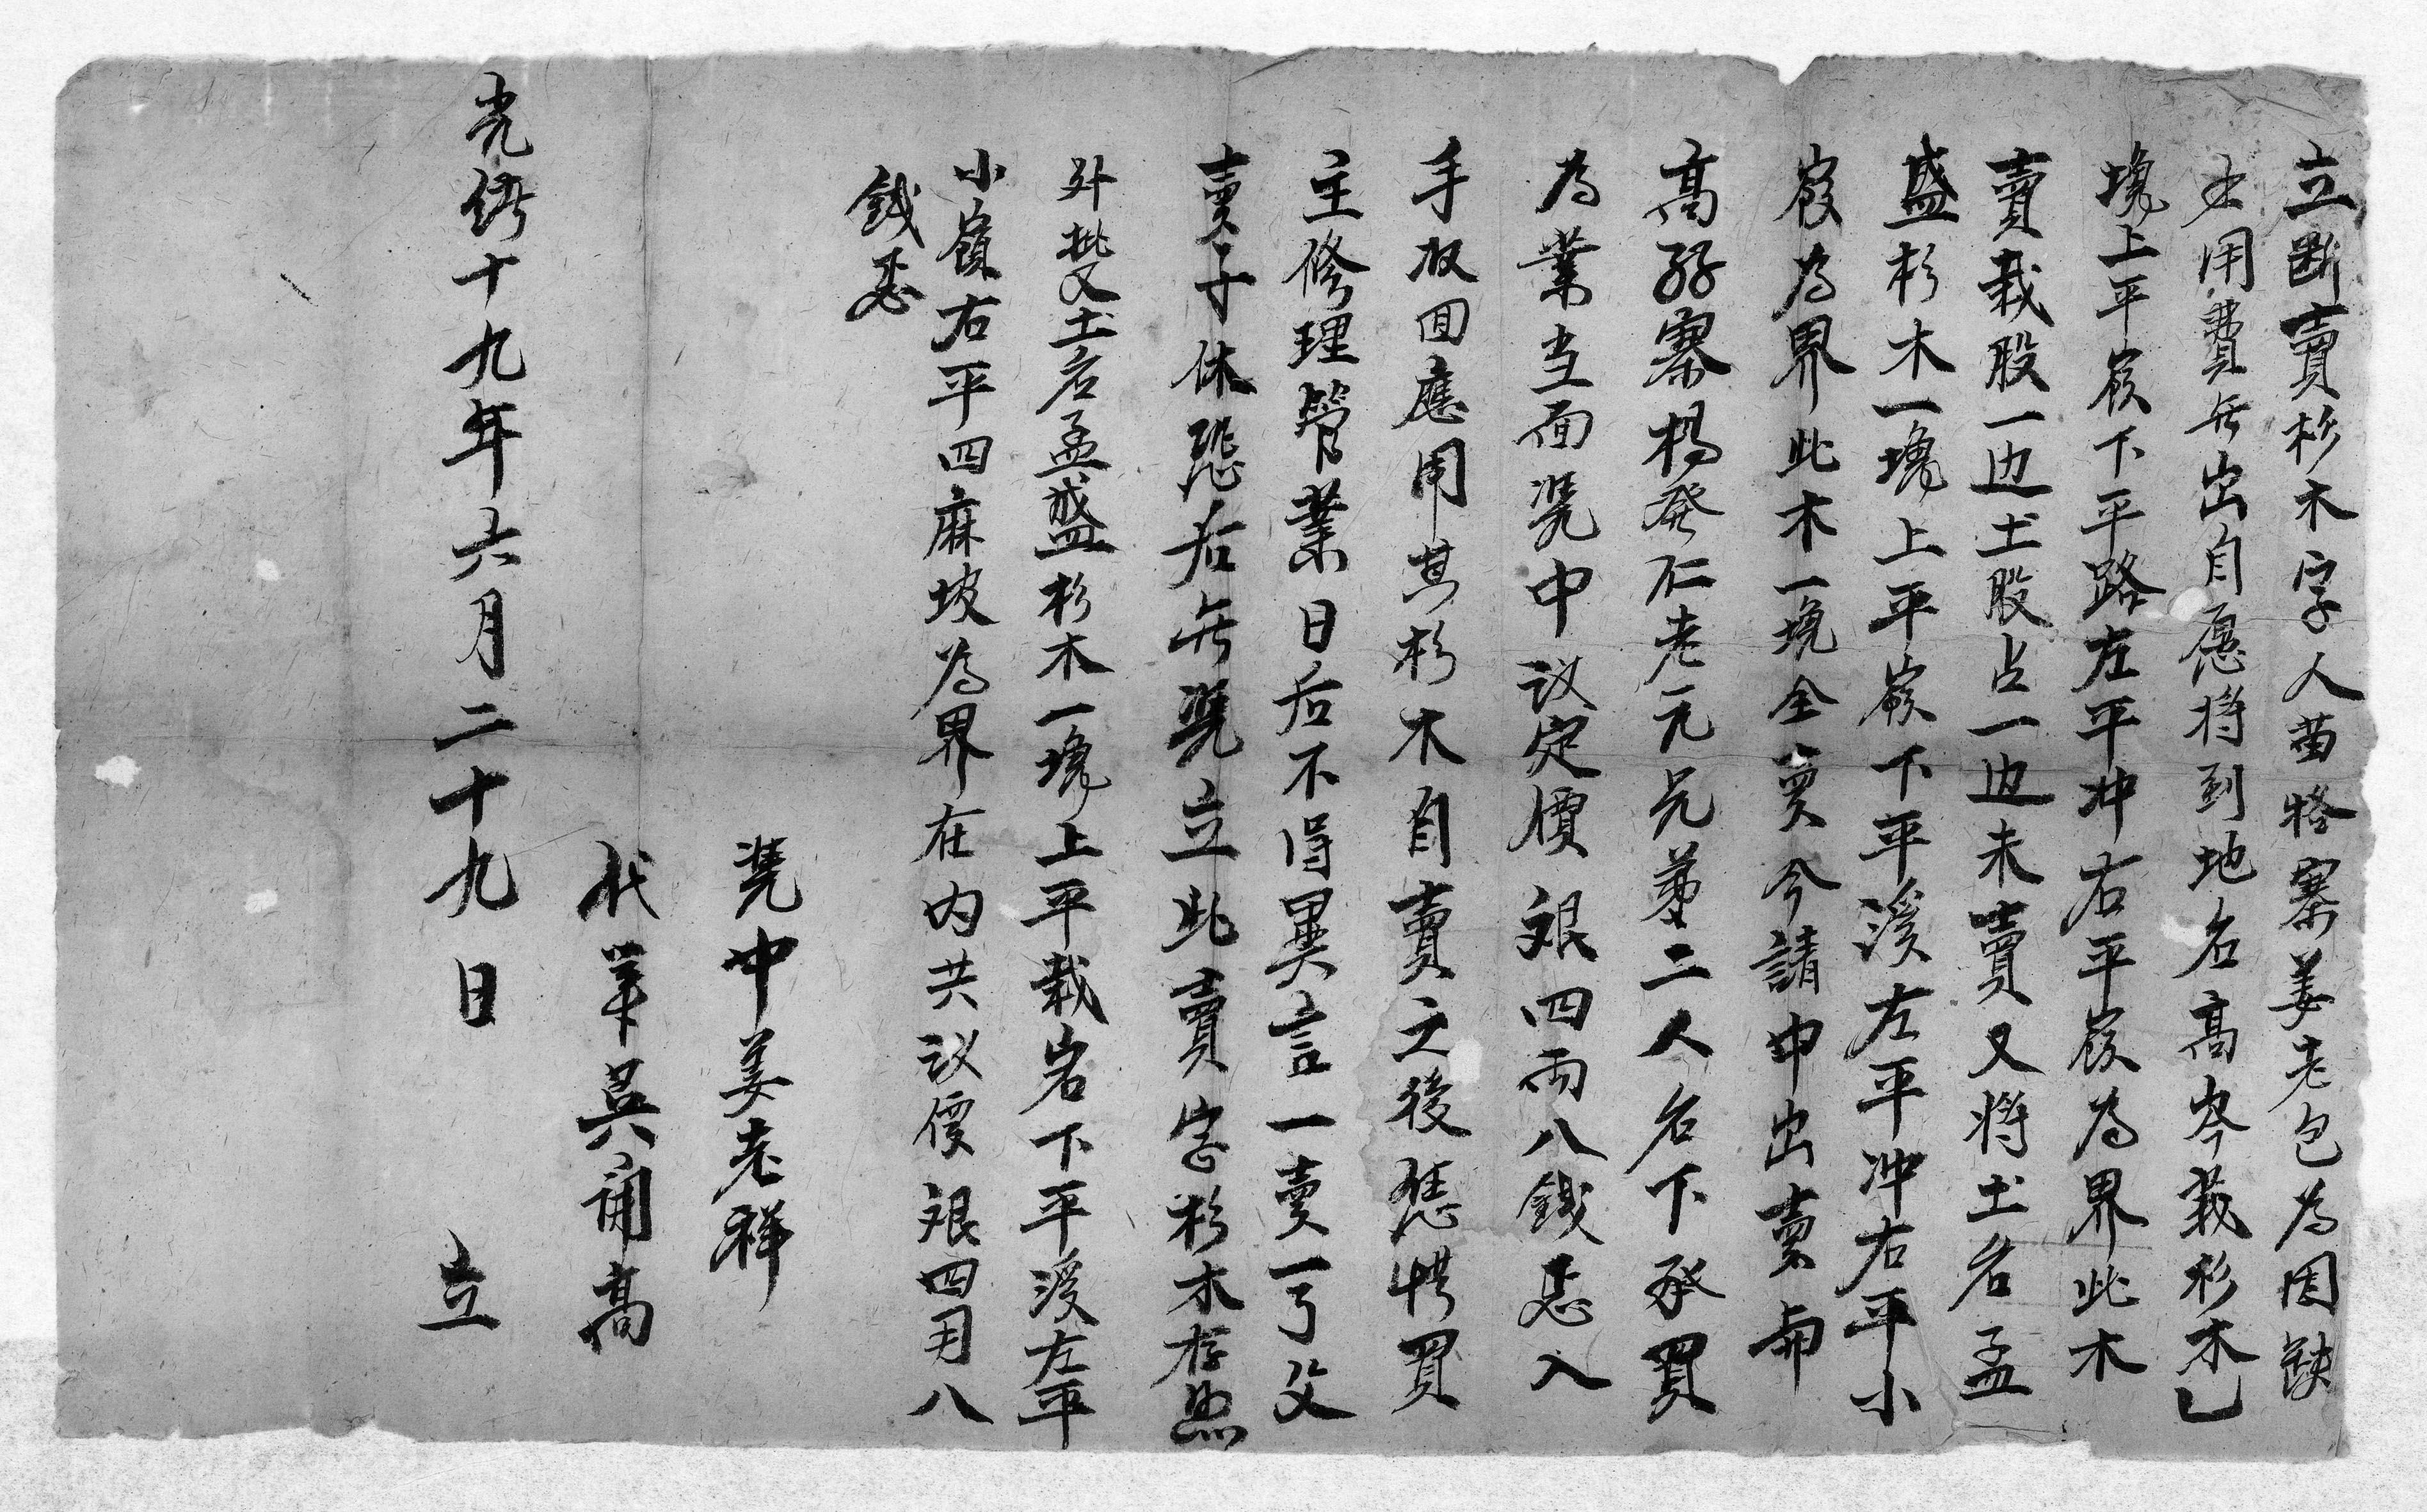 立断賣杉木字人苗格寨姜老包為因缺
少用費無出自愿将到地名高岑栽杉木乙
塊上平嶺下平路左平冲右平嶺為界此木
賣栽股一边土股占一边未賣又将土名孟
盛杉木一塊上平嶺下平溪左平冲右平小
嶺為界此木一塊全賣今請中出賣與
高孖寨楊發仁老元兄弟二人名下承買
為業当面憑中议定價艮四両八錢忎入
手收回應用其杉木自賣之後恁憑買
主修理管業日后不得異言一賣一了父
賣子休恐后無憑立此賣字杉木存照
外批又土名孟盛杉木一塊上平栽岩下平溪左平
小嶺右平四麻坡為界在内共议價艮四両八
錢忎
憑中姜老祥
代筆吳開高
光緒十九年六月二十九日 立